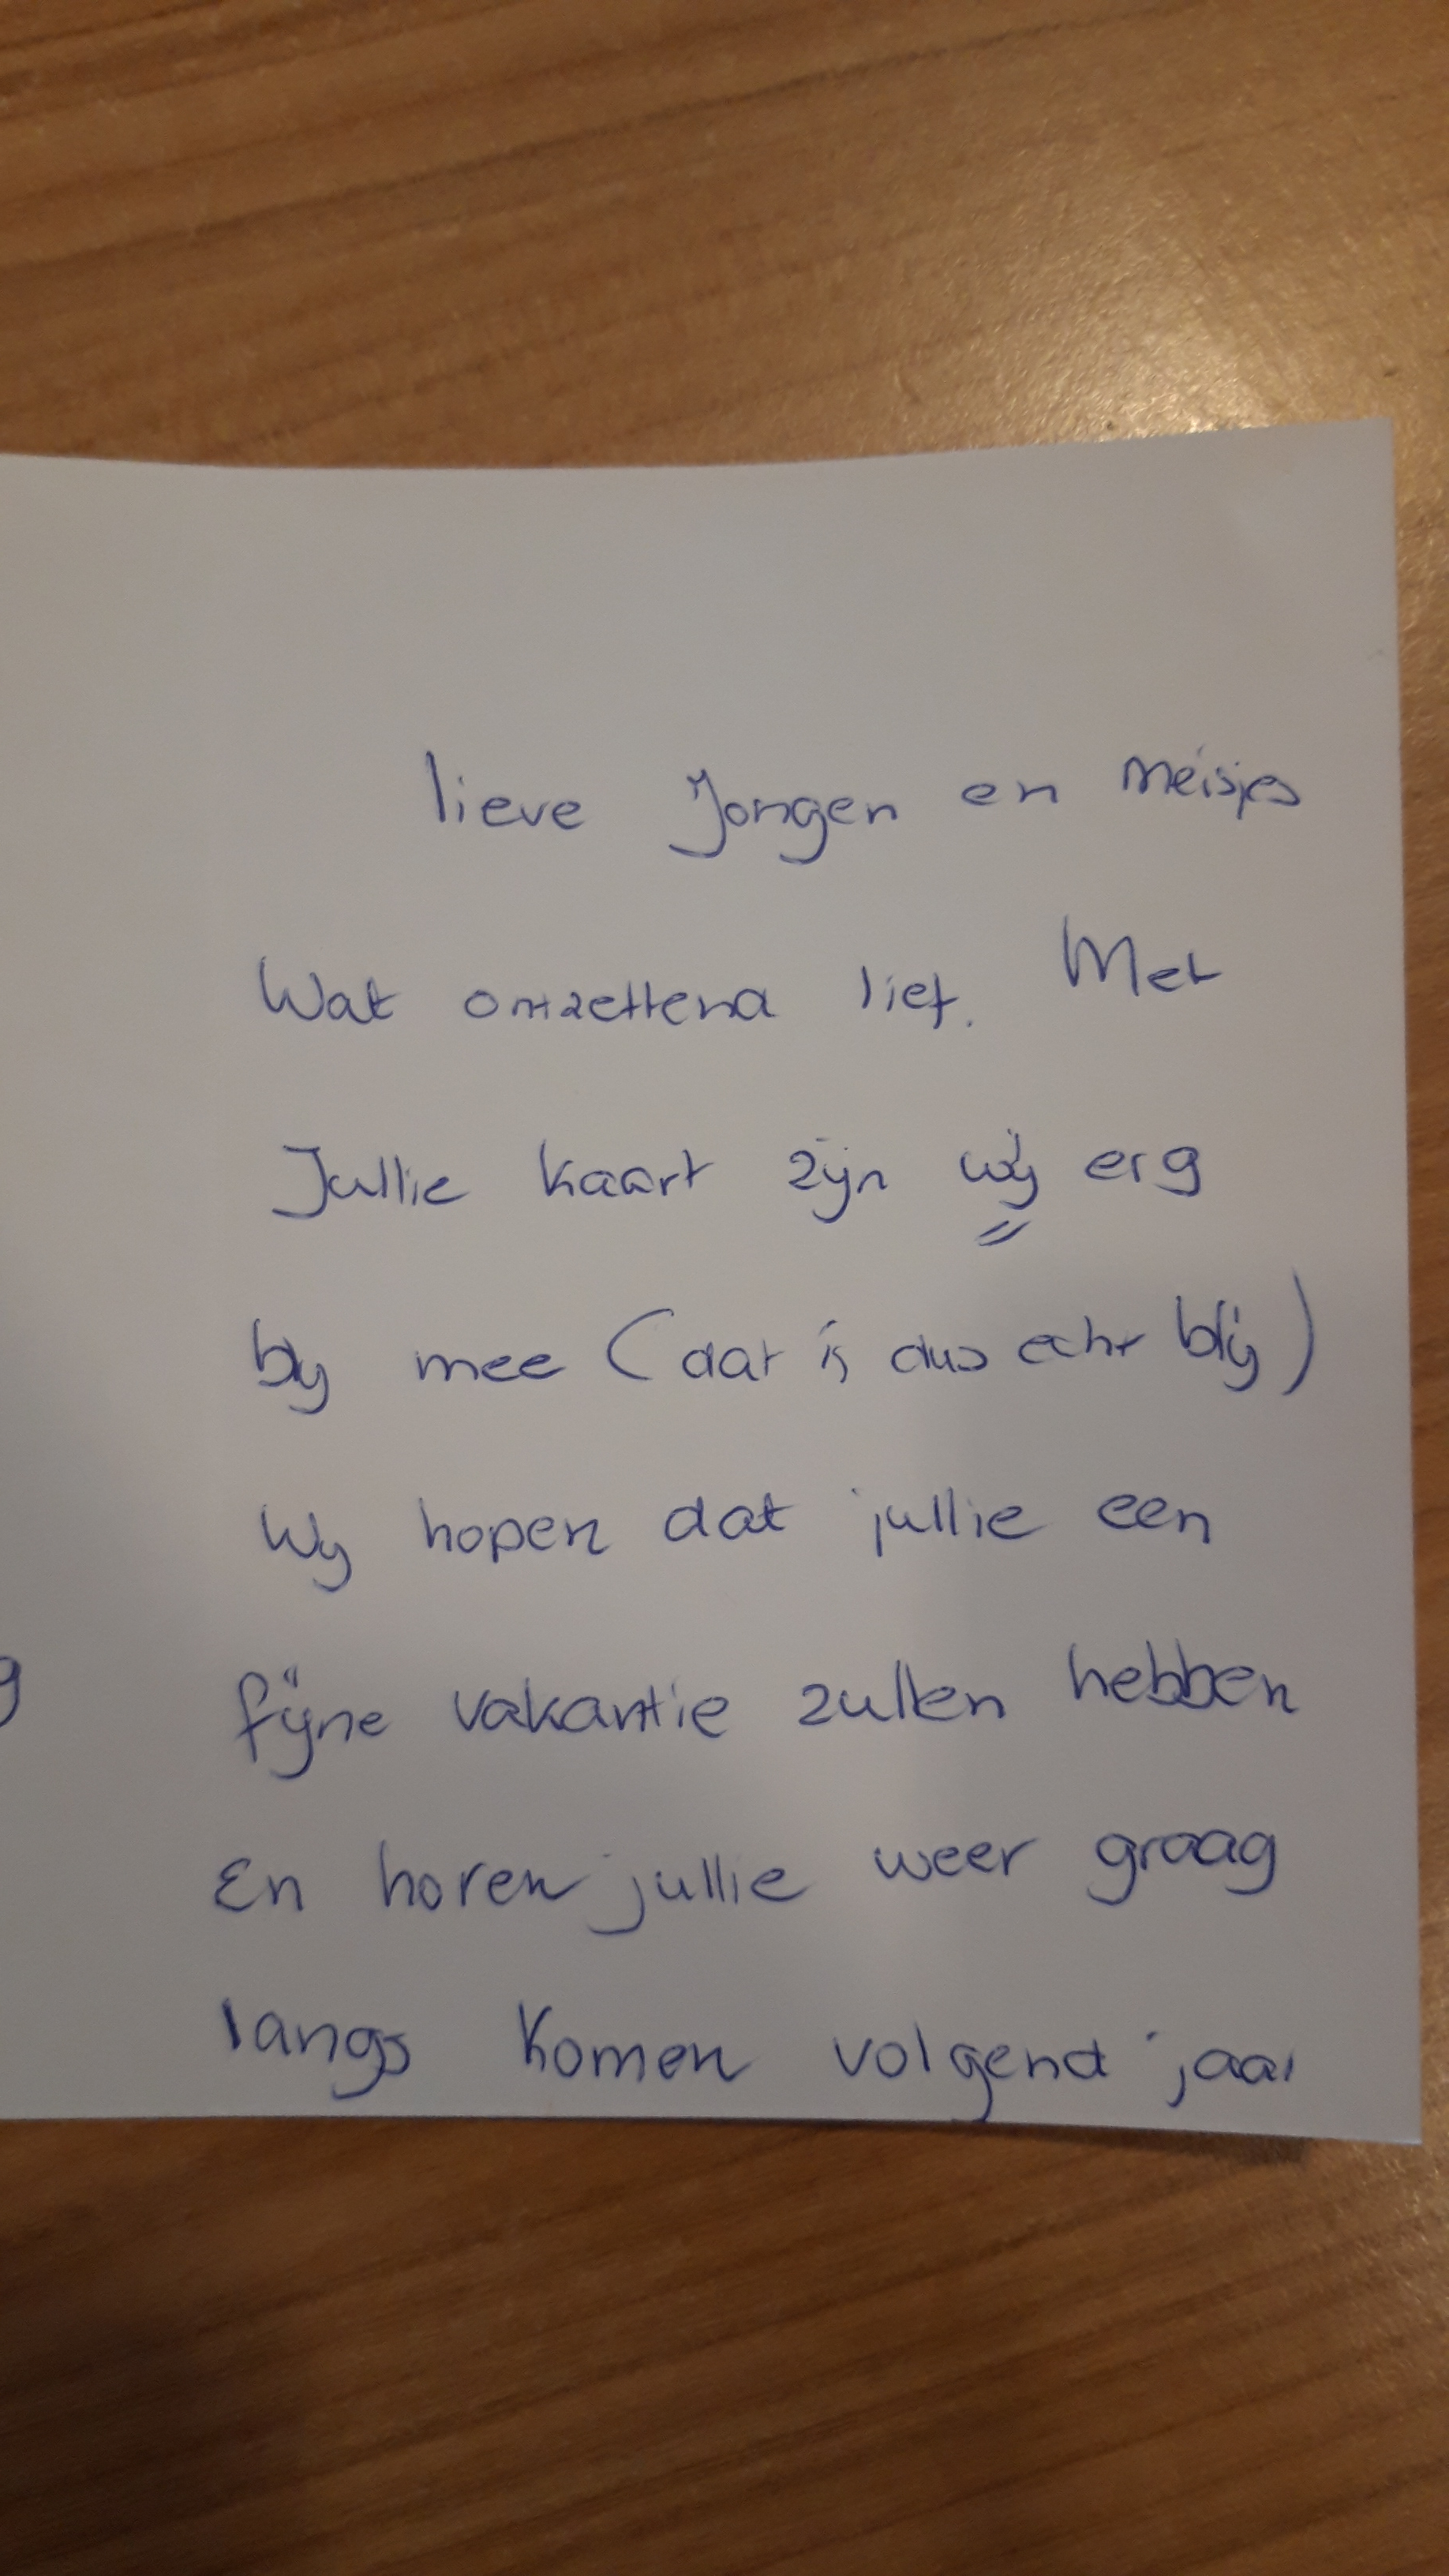 lieve Jongen en meisjes
Wat ontzettend lief. Met
Jullie kaart zijn wij erg
blij mee (dat is dus echt blij)
Wij hopen dat jullie een
fijne vakantie zullen hebben
En horen jullie weer graag
langs komen volgend jaar